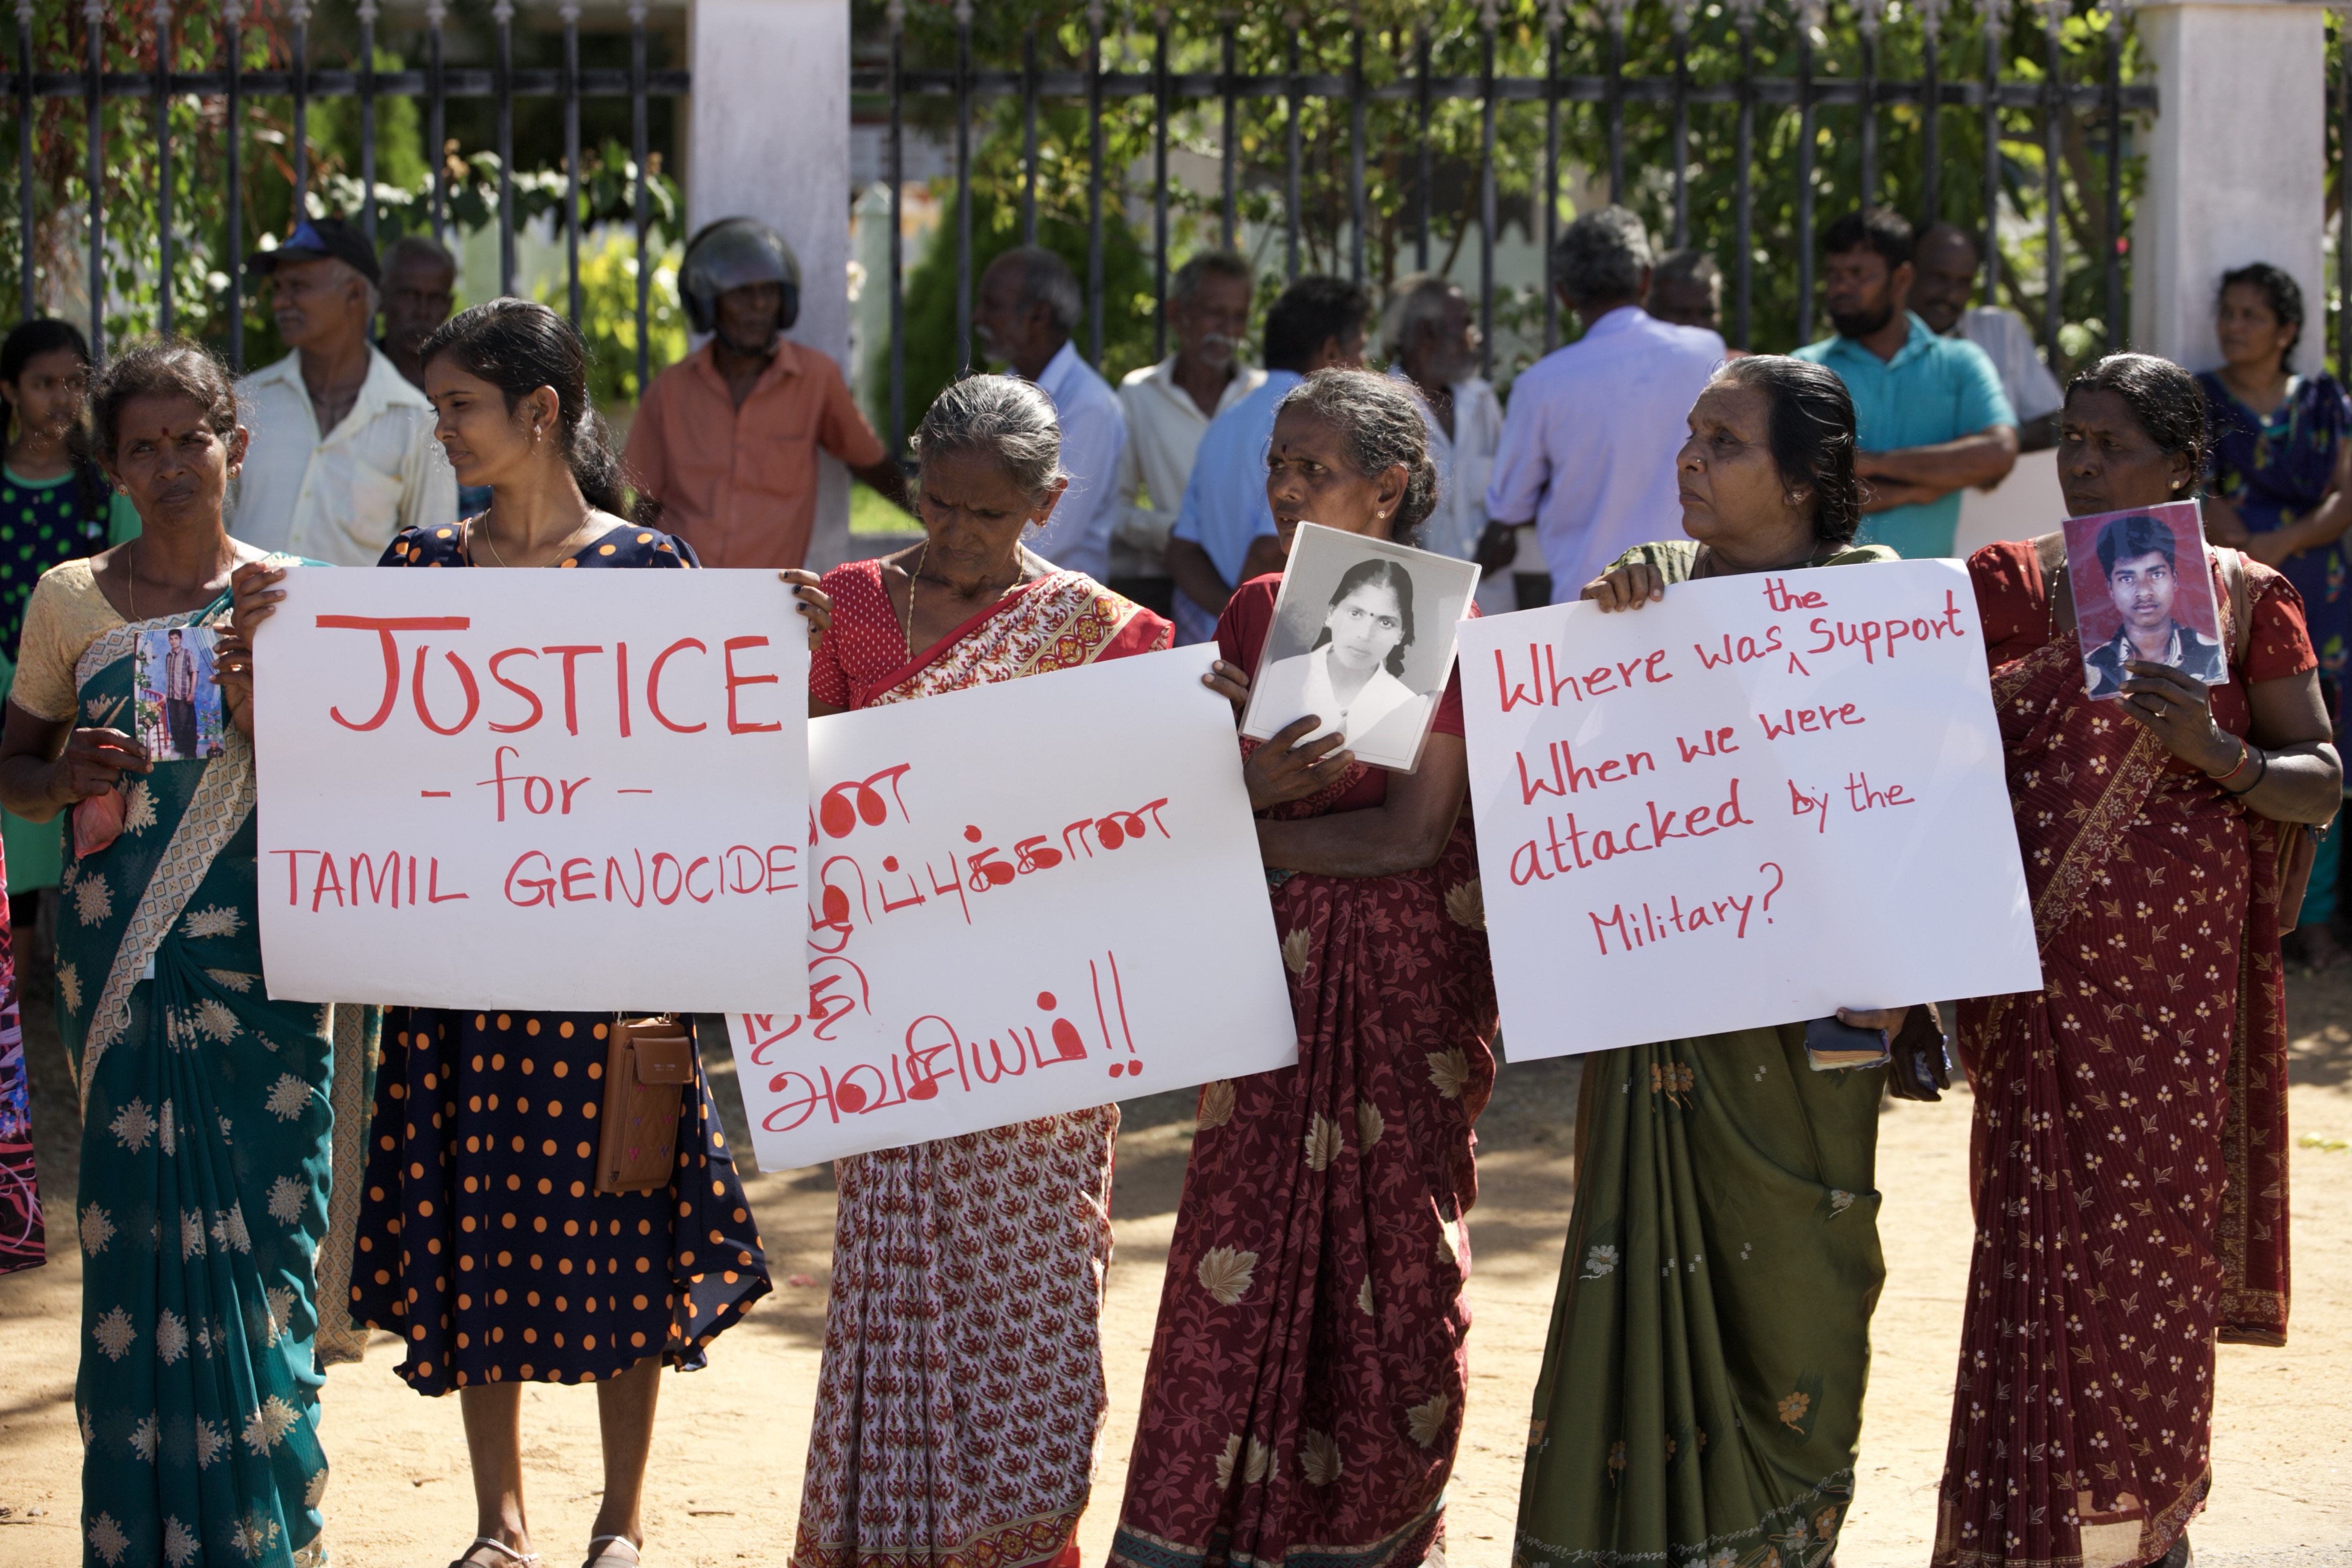 JUSTICE
- for -
TAMIL GENOCIDE
அவசியம்!!
Where was the support
When we were
attacked by the
Military?